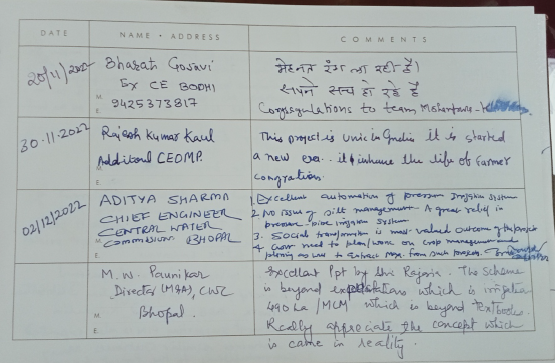 DATE NAME • ADDRESS COMMENTS
20/11/2022
Bharati Gosavi
Ex CE BODHI
M. 9425373817
E.
मेहनत रंग ला रही है।
सपने सच हो रहे हैं
Congragulations to team Mohanpura-
30.11.2022
Rajesh Kumar Kaul
Additoul CEOMP.
M.
E.
This project is unic in India it is started
a new era.. it inhume the life of Farmer
congration.
02/12/2022
ADITYA SHARMA
CHIEF ENGINEER
CENTRAL WATER
M. Commission BHOPAL
E.
1. Excellent automation of pressure Irrigation System
2. No issue of silt management. A great relief in
pressure pipe irrigation system
3. Social transformation is most valued outcome of the project
4. Govt need to plan/work on crop management and
M. W. Paunikar
Director (M&A), CWC
M. Bhopal.
E.
Excellent Ppt by Shri Rajoria. The Scheme
is beyond expectations which is irrigation
490 ha/MCM which is beyond Textbooks.
Really appreciate the concept which
is came in reality.